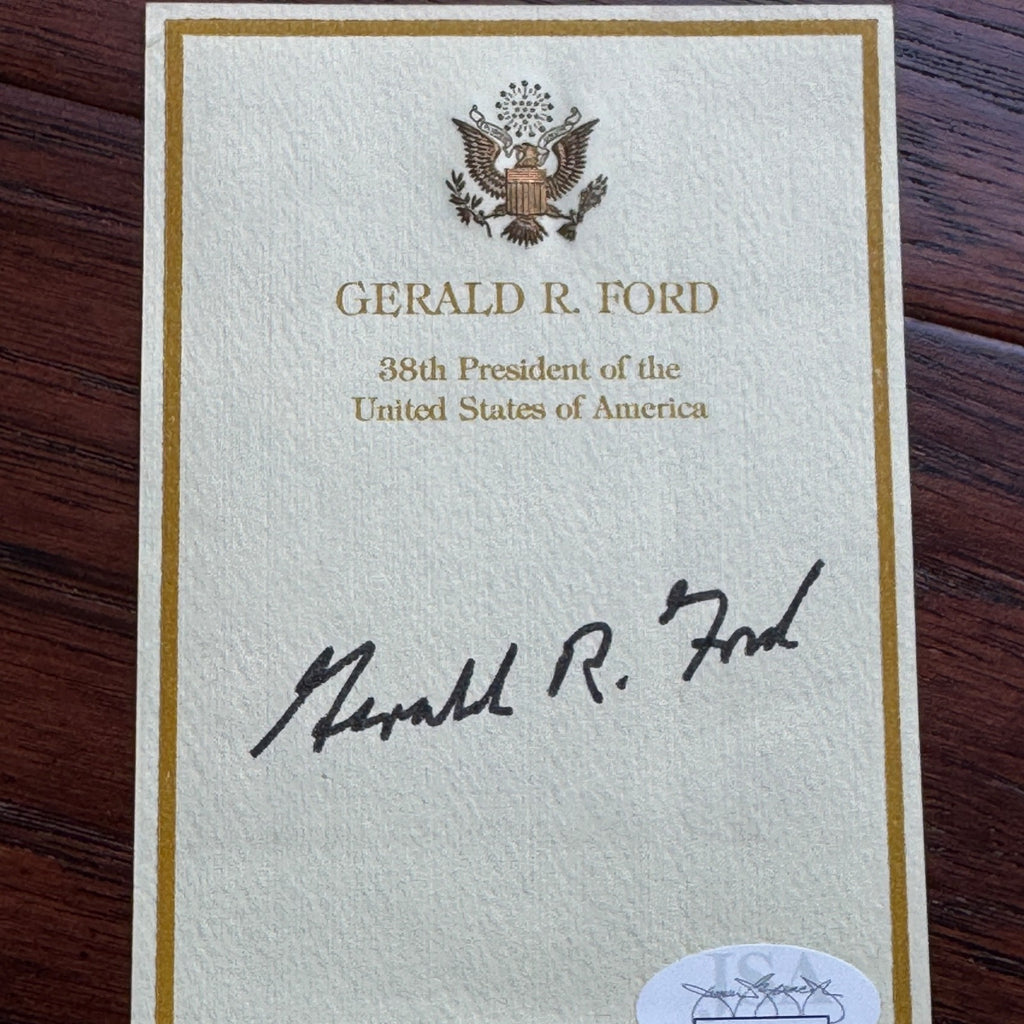 GERALD R. FORD
38th President of the
United States of America
Gerald R. Ford
JSA